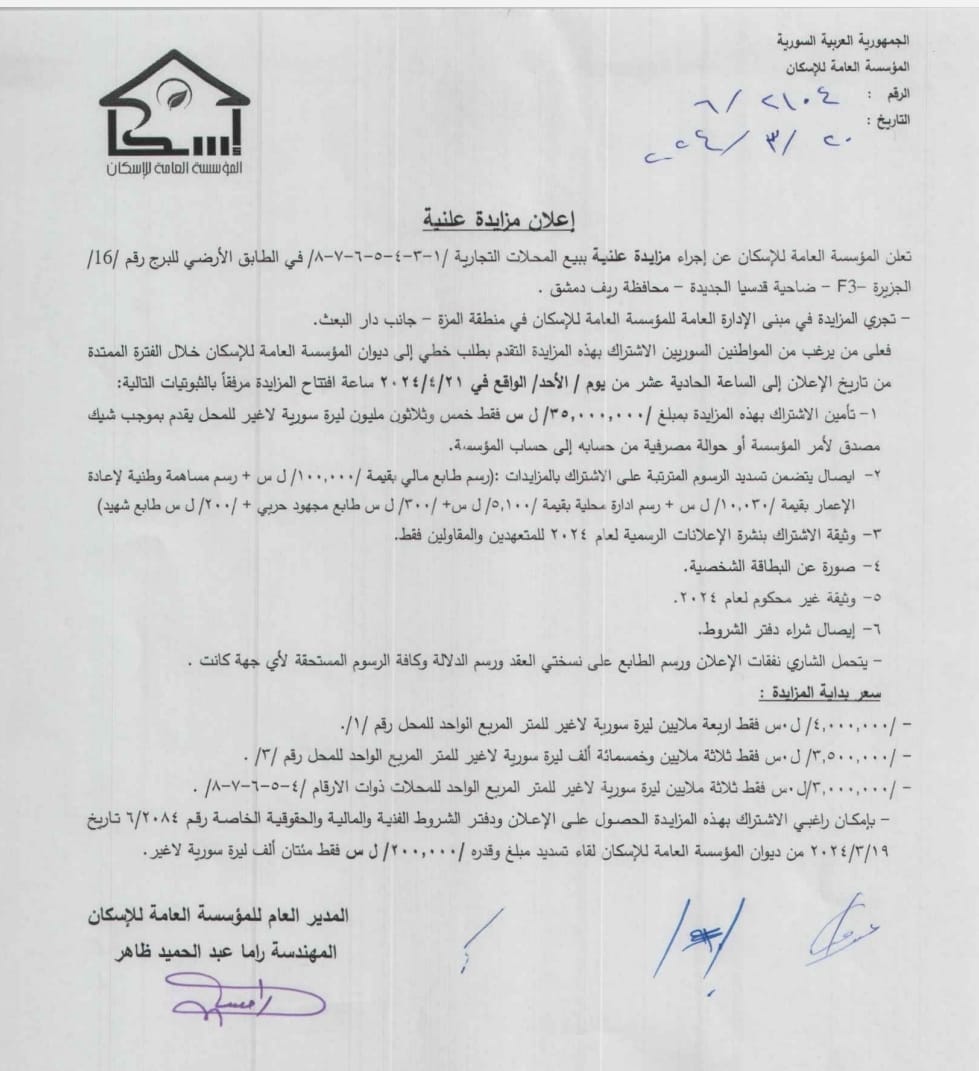 الجمهورية العربية السورية
المؤسسة العامة للإسكان
الرقم : ٦/٢١٠٤
التاريخ : ٢٠/٣/٢٠٢٤
إسكان
المؤسسة العامة للإسكان
إعلان مزايدة علنية
تعلن المؤسسة العامة للإسكان عن إجراء مزايدة علنية ببيع المحلات التجارية /١-٣-٤-٥-٦-٧-٨/ في الطابق الأرضي للبرج رقم /16/
الجزيرة –F3 – ضاحية قدسيا الجديدة – محافظة ريف دمشق .
– تجري المزايدة في مبنى الإدارة العامة للمؤسسة العامة للإسكان في منطقة المزة – جانب دار البعث.
فعلى من يرغب من المواطنين السوريين الاشتراك بهذه المزايدة التقدم بطلب خطي إلى ديوان المؤسسة العامة للإسكان خلال الفترة الممتدة
من تاريخ الإعلان إلى الساعة الحادية عشر من يوم / الأحد/ الواقع في ٢٠٢٤/٤/٢١ ساعة افتتاح المزايدة مرفقاً بالثبوتيات التالية:
١– تأمين الاشتراك بهذه المزايدة بمبلغ /٣٥,٠٠٠,٠٠٠/ ل س فقط خمس وثلاثون مليون ليرة سورية لاغير للمحل يقدم بموجب شيك
مصدق لأمر المؤسسة أو حوالة مصرفية من حسابه إلى حساب المؤسسة.
٢– ايصال يتضمن تسديد الرسوم المترتبة على الاشتراك بالمزايدات :(رسم طابع مالي بقيمة /١٠٠,٠٠٠/ ل س + رسم مساهمة وطنية لإعادة
الإعمار بقيمة /١٠,٠٣٠/ ل س + رسم ادارة محلية بقيمة /٥,١٠٠/ ل س+ /٣٠٠/ ل س طابع مجهود حربي + /٢٠٠/ ل س طابع شهيد)
٣– وثيقة الاشتراك بنشرة الإعلانات الرسمية لعام ٢٠٢٤ للمتعهدين والمقاولين فقط.
٤– صورة عن البطاقة الشخصية.
٥– وثيقة غير محكوم لعام ٢٠٢٤.
٦– إيصال شراء دفتر الشروط.
– يتحمل الشاري نفقات الإعلان ورسم الطابع على نسختي العقد ورسم الدلالة وكافة الرسوم المستحقة لأي جهة كانت .
سعر بداية المزايدة :
– /٤,٠٠٠,٠٠٠/ ل.س فقط اربعة ملايين ليرة سورية لاغير للمتر المربع الواحد للمحل رقم /١/.
– /٣,٥٠٠,٠٠٠/ ل.س فقط ثلاثة ملايين وخمسمائة ألف ليرة سورية لاغير للمتر المربع الواحد للمحل رقم /٣/ .
– /٣,٠٠٠,٠٠٠/ل.س فقط ثلاثة ملايين ليرة سورية لاغير للمتر المربع الواحد للمحلات ذوات الارقام /٤-٥-٦-٧-٨/ .
– بإمكان راغبي الاشتراك بهذه المزايدة الحصول على الإعلان ودفتر الشروط الفنية والمالية والحقوقية الخاصة رقم ٦/٢٠٨٤ تاريخ
٢٠٢٤/٣/١٩ من ديوان المؤسسة العامة للإسكان لقاء تسديد مبلغ وقدره /٢٠٠,٠٠٠/ ل س فقط مئتان ألف ليرة سورية لاغير.
المدير العام للمؤسسة العامة للإسكان
المهندسة راما عبد الحميد ظاهر